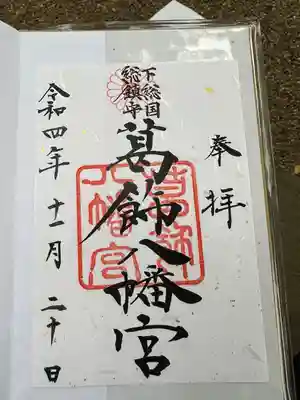 奉拝
下総国
総鎮守
葛飾八幡宮
葛飾
八幡宮
令和四年十一月二十日